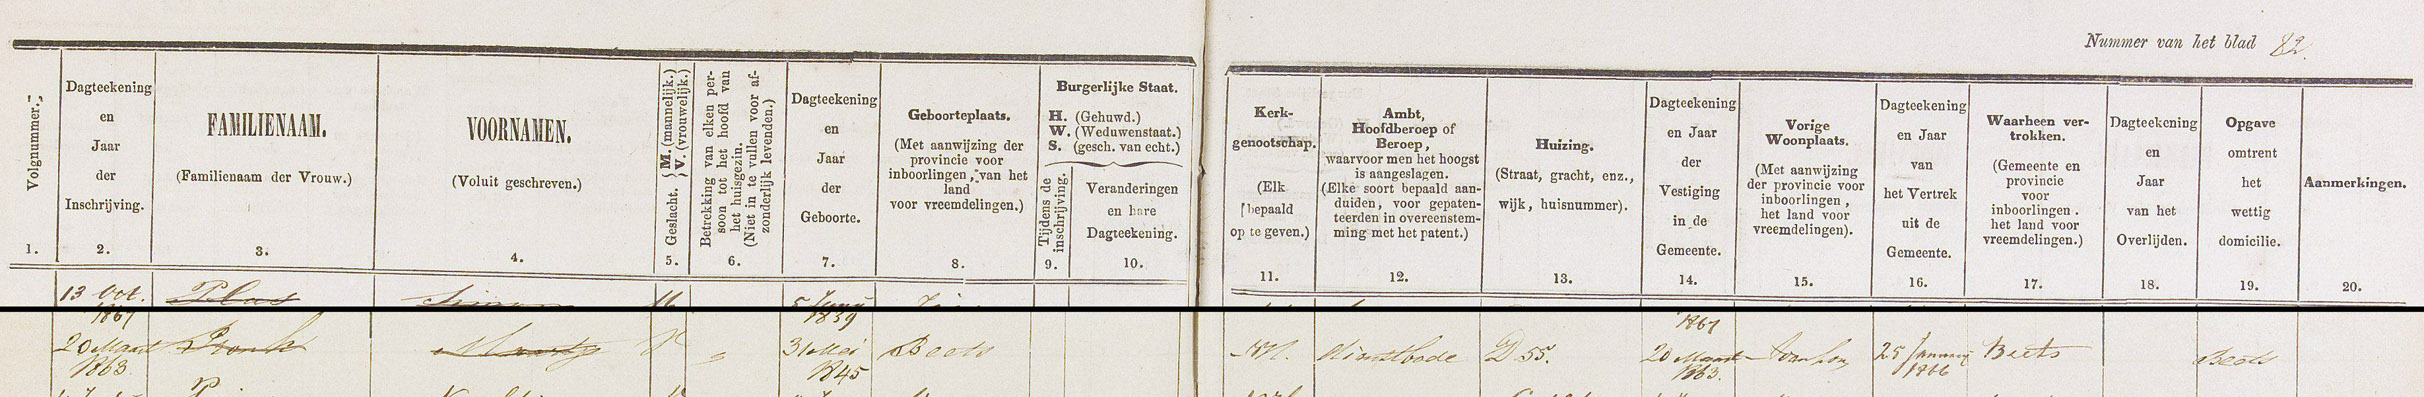 Nummer van het blad 82.
Volgnummer.
1.
Dagteekening
en
Jaar
der
Inschrijving.
2.
FAMILIENAAM.
(Familienaam der Vrouw.)
3.
VOORNAMEN.
(Voluit geschreven.)
4.
Geslacht. { M. (mannelijk.)
V. (vrouwelijk.)
5.
Betrekking van elken per-
soon tot het hoofd van
het huisgezin.
(Niet in te vullen voor af-
zonderlijk levenden.)
6.
Dagteekening
en
Jaar
der
Geboorte.
7.
Geboorteplaats.
(Met aanwijzing der
provincie voor
inboorlingen, van het
land
voor vreemdelingen.)
8.
Burgerlijke Staat.
H. (Gehuwd.)
W. (Weduwenstaat.)
S. (gesch. van echt.)
Tijdens de
inschrijving.
9.
Veranderingen
en hare
Dagteekening.
10.
Kerk-
genootschap.
(Elk
bepaald
op te geven.)
11.
Ambt,
Hoofdberoep of
Beroep,
waarvoor men het hoogst
is aangeslagen.
(Elke soort bepaald aan-
duiden, voor gepaten-
teerden in overeenstem-
ming met het patent.)
12.
Huizing.
(Straat, gracht, enz.,
wijk, huisnummer).
13.
Dagteekening
en Jaar
der
Vestiging
in de
Gemeente.
14.
Vorige
Woonplaats.
(Met aanwijzing
der provincie voor
inboorlingen,
het land voor
vreemdelingen).
15.
Dagteekening
en Jaar
van
het Vertrek
uit de
Gemeente.
16.
Waarheen ver-
trokken.
(Gemeente en
provincie
voor
inboorlingen.
het land voor
vreemdelingen.)
17.
Dagteekening
en
Jaar
van het
Overlijden.
18.
Opgave
omtrent
het
wettig
domicilie.
19.
Aanmerkingen.
20.
13 Oct. Plas Simon M 5 Juny
1861 1839 1861
20 Maart Pronk Maartje V " 31 Mei Beets NH. dienstbode D 55. 20 Maart Avenhorn 25 January Beets Beets
1863 1845 1863. 1866